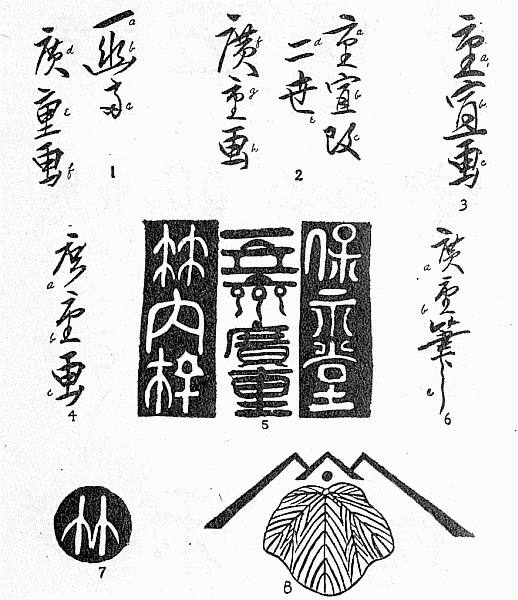 一幽斎
廣重画
1
重宣改
二世
廣重画
2
重宣画
3
廣重画
4
保永堂
一立齋廣重
竹内梓
5
廣重筆
6
竹
7
8